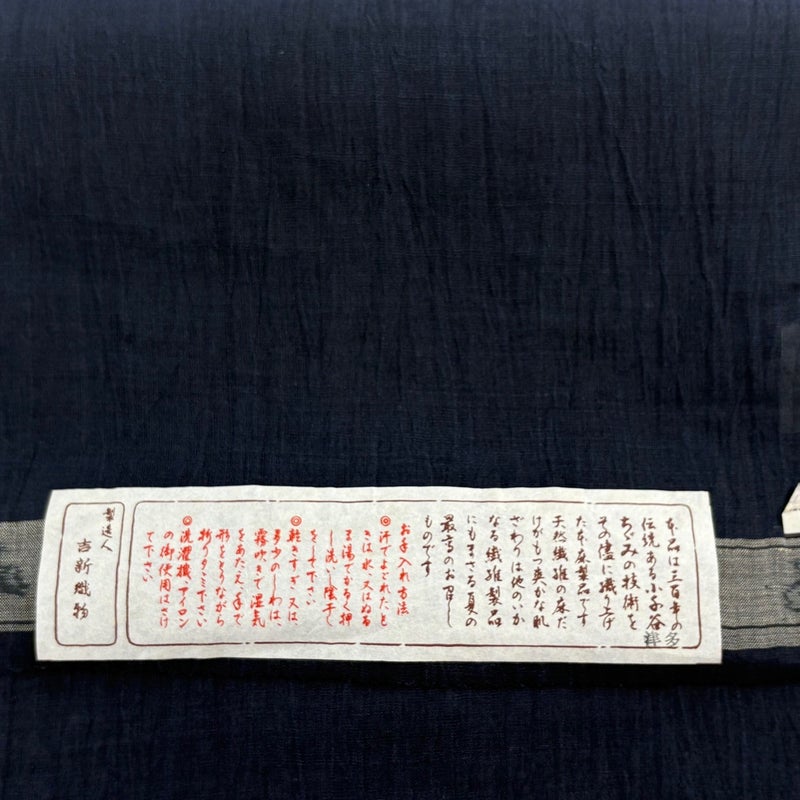 本品は三百年の
伝統ある小千谷
ちゞみの技術を
その儘に織り上げ
た本麻製品です
天然繊維の麻だ
けがもつ爽かな肌
ざわりは他のいか
なる繊維製品
にもまさる夏の
最高のお召し
ものです
お手入れ方法
◎汗でよごれたと
きは水又はぬる
ま湯でかるく押
し洗いし陰干し
をして下さい
◎乾きすぎ又は
多少のしわは、
霧吹きで湿気
をあたえ、手で
形をととのえながら
折りタタミ下さい
◎洗濯機、アイロン
の御使用はさけ
て下さい
製造人
吉新織物